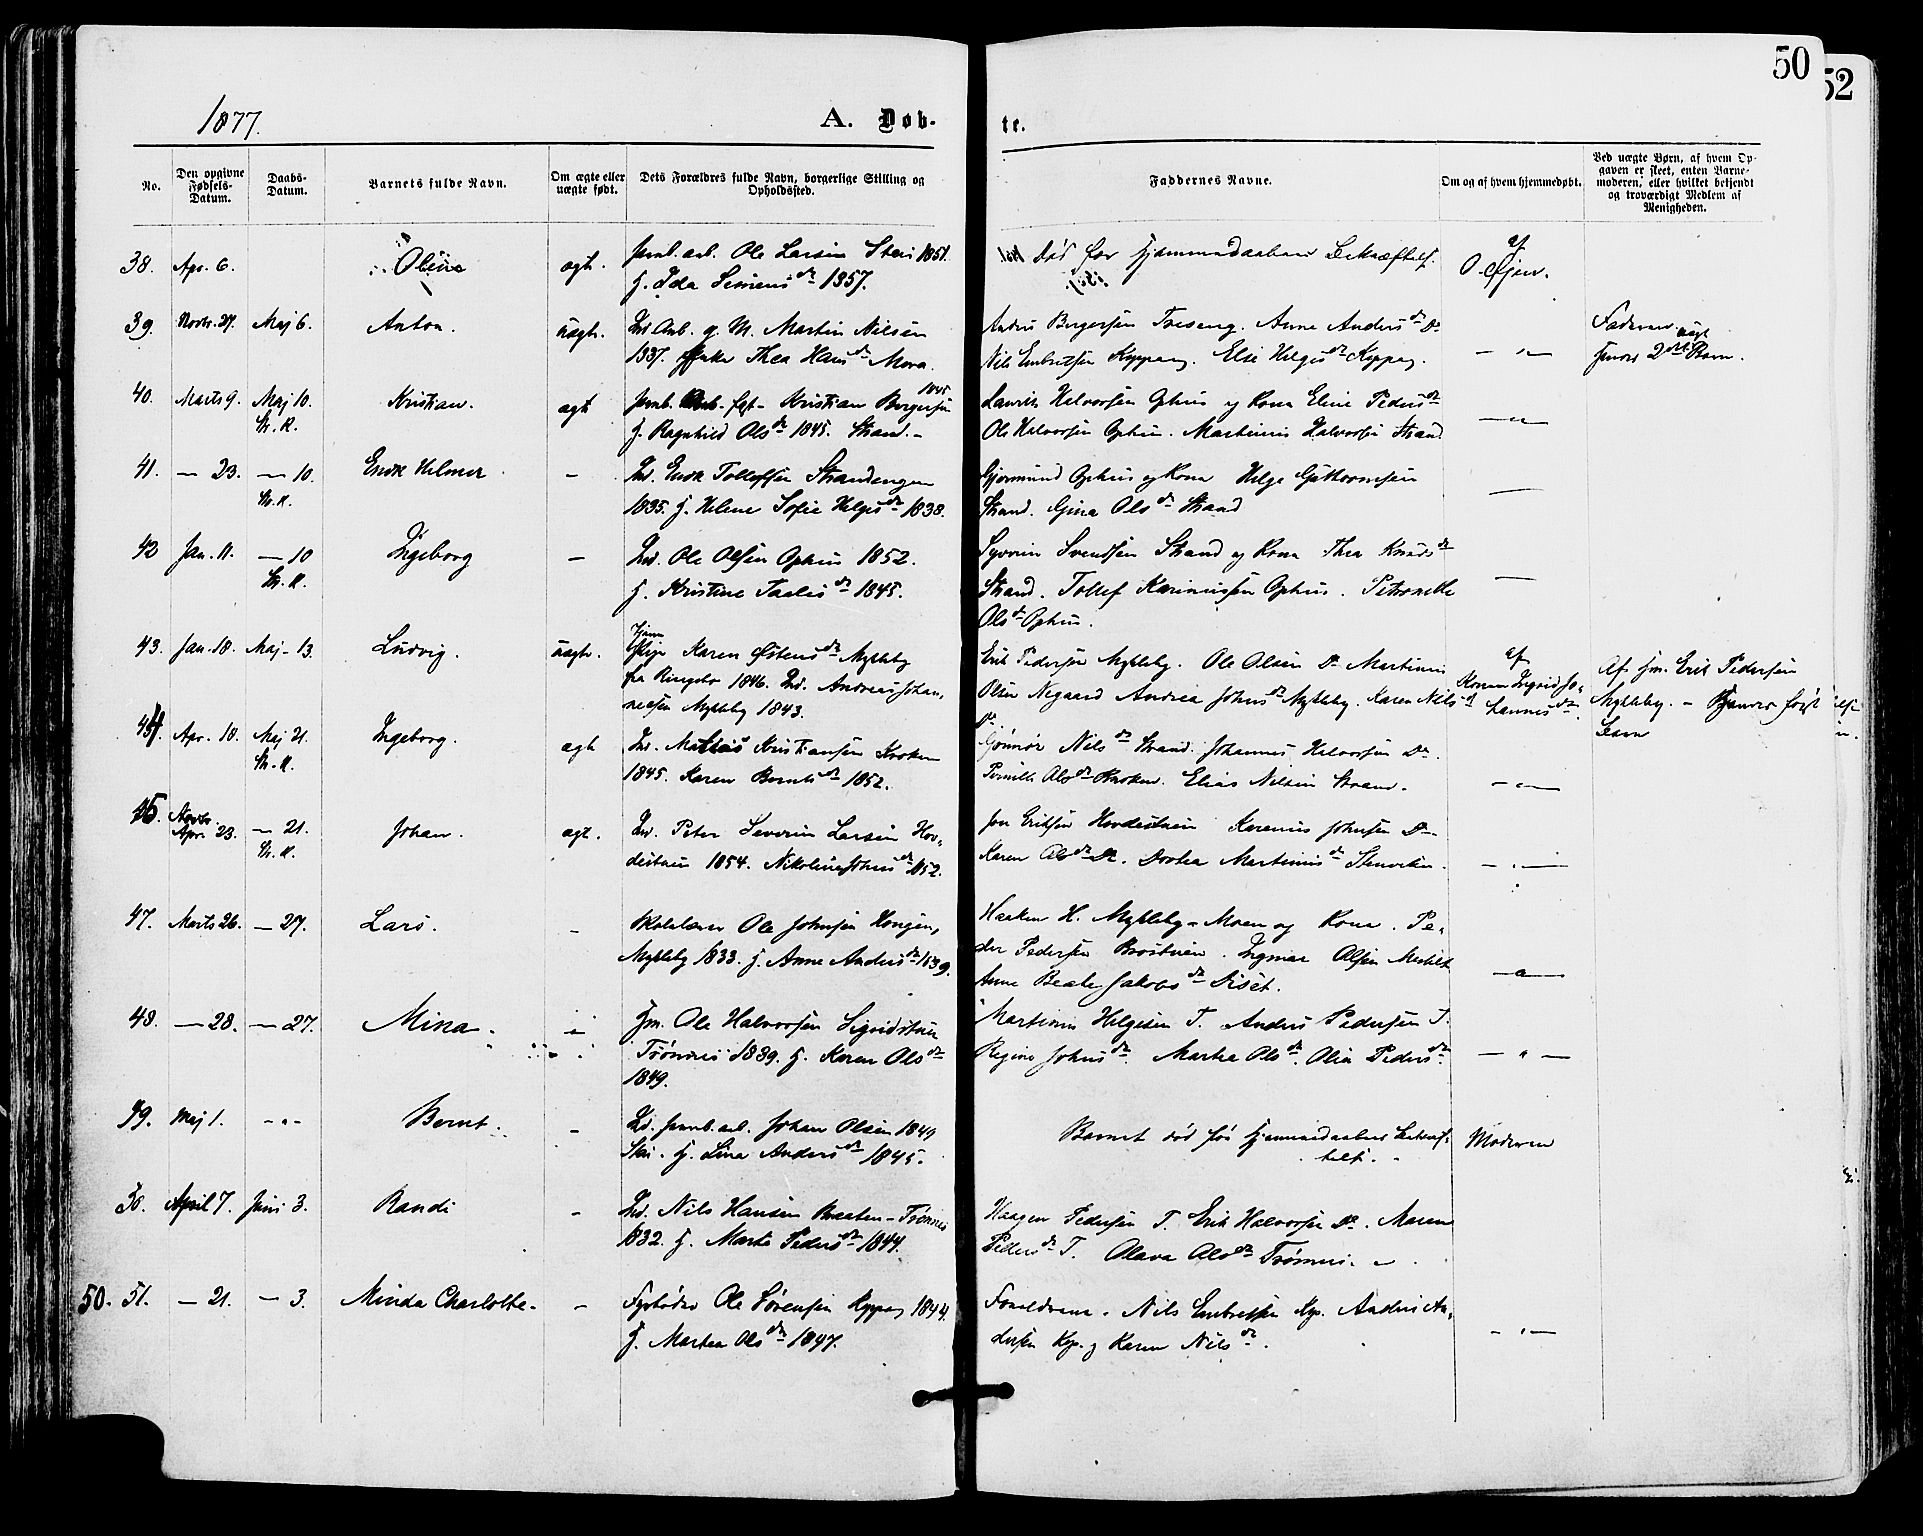 50
52
1877.
A. Døb-
te.
No.
Den opgivne Fødsels-Datum.
Daabs-Datum.
Barnets fulde Navn.
Om ægte eller uægte født.
Dets Forældres fulde Navn, borgerlige Stilling og Opholdssted.
Faddernes Navne.
Om og af hvem hjemmedøbt.
Ved uægte Børn, af hvem Op-
gaven er skeet, enten Barne-
moderen, eller hvilket bekjendt
og troværdigt Medlem af
Menigheden.
38. Apr. 6. Oline ægt. Jernb. arb. Ole Larsen Stai 1851.
H. Ida Simens dr 1857.
død før Hjemmedaabens Bekræftelse.
af
O. Øjen.
39. Novbr. 27. Maj 6. Anton. uægte. Ind. Anb. g. M. Martin Nilsen
1837. Enke Thea Hans dr Mora.
Anders Bergersen Treseng. Anne Anders dr Do
Nils Embretsen Koppang. Else Helges dr Koppang.
— " —
Faderen
hendes 2det Barn.
40. Marts 9. Maj 10. Kristian. ægt Jernb. Kristian Bergersen 1845
St. K. H. Ragnhild Ols dr 1845. Strand. –
Laurits Halvorsen Ophus og Kona Eline Peders dr
Ole Halvorsen Ophus. Martinus Halvorsen Strand
— " —
41. — 23. — 10. Enok Helmer — Ind. Enok Tollefsen Strandengen
St. K. 1835. H. Helene Sofie Helges dr 1838.
Gjermund Ophus og Kona Helge Guttormsen
Strand. Gina Ols dr Strand
—
42 Jan. 11. — 10 Ingeborg — Ind. Ole Olsen Ophus 1852.
St. K. H. Kristine Taales dr 1845.
Syverin Svendsen Strand og Kona Thea Knuds dr
Strand. Tollef Karinusen Ophus. Petronelle
Ols dr Ophus.
—
43. Jan. 18. Maj – 13. Ludvig. uægte. Pige Karen Østens dr Mykleby
fra Ringebo 1846. Ind. Andreas Johan-
nesen Mykleby 1843.
Erik Pedersen Mykleby. Ole Olsen Do Martinus
Olsen Negaard Andrea Johns dr Mykleby. Karen Nils dr
Do.
af
Konen Ingrid Jo-
hannes dr.
Af Gm. Erik Pedersen
Mykleby. –
Barn
44. Apr. 18. Maj 21. Ingeborg. ægt Ind. Matias Kristiansen Kroken
St. K. 1845. Karen Bernts dr 1852.
Gunnor Nils dr Strand. Johannes Halvorsen Do.
Pernille Ols dr Kroken. Elias Nilsen Strand.
— " —
45. Apr. 23. — 21. Johan. ægt. Ind. Peter Severin Larsen Hov-
St. K. destuen 1854. Nikoline Johns dr 1852.
Jon Eriksen Hovdestuen Karenus Johnsen Do
Karen Ols dr Do. Dortea Martinus dr Stenviken.
— " —
47. Marts 26. — 27. Lars. — Skolelærer Ole Johnsen Haugen,
Mykleby 1833. H. Anne Anders dr 1839.
Haaken H. Mykleby-Moen og Kona. Pe-
der Pedersen Brostuen. Ingmar Olsen
Anne Beate Jakobs dr Diset.
— " —
48. — 28. — 27. Mina. — Gm. Ole Halvorsen Sigridstuen
Trønnes 1839. H. Karen Ols dr
1849.
Martinus Helgesen T. Anders Pedersen T.
Regine Johns dr. Martea Ols dr. Olia Peders dr.
— " —
49. Maj 1. — " — Bernt. — Ind. Jernb. arb. Johan Olsen 1849
Stai. H. Lina Anders dr 1845.
Barnet død før Hjemmedaabens Bekræf-
telse.
Moderen
50. April 7. Juni 3. Randi — Ind. Nils Hansen Braaten – Trønnes
1832. H. Marte Peders dr 1844.
Haagen Pedersen T. Erik Halvorsen Do. Maren
Peders dr T. Olava Ols dr Trønnes.
50. 51. — 21. — 3. Minda Charlotte. — Fyrbøder Ole Sørensen Koppang 1844.
H. Martea Ols dr 1847.
Forældrene. Nils Embretsen Kop. Anders An-
dersen Kop. og Karen Nils dr.
— " —